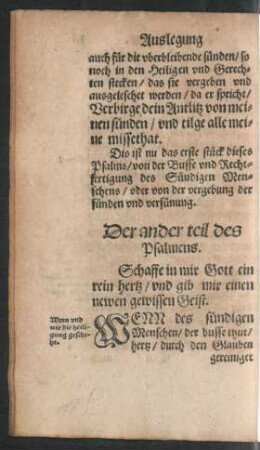 Auslegung
auch für die vberbleibende sünden/ so
noch in den Heiligen vnd Gerech-
ten stecken/ das sie vergeben vnd
ausgeleschet werden/ da er spricht/
Verbirge dein Antlitz von mei-
nen sünden/ vnd tilge alle mei-
ne missethat.
Dis ist nu das erste stück dieses
Psalms/ von der Busse vnd Recht-
fertigung des Sündigen Men-
schens/ oder von der vergebung der
sünden vnd versünung.
Der ander teil des
Psalmens.
Schaffe in mir Gott ein
rein hertz/ vnd gib mir einen
newen gewissen Geist.
Wenn vnd
wie die heili-
gung gesche-
he.
WENN des sündigen
Menschen/ der busse thut/
hertz/ durch den Glauben
gereiniget